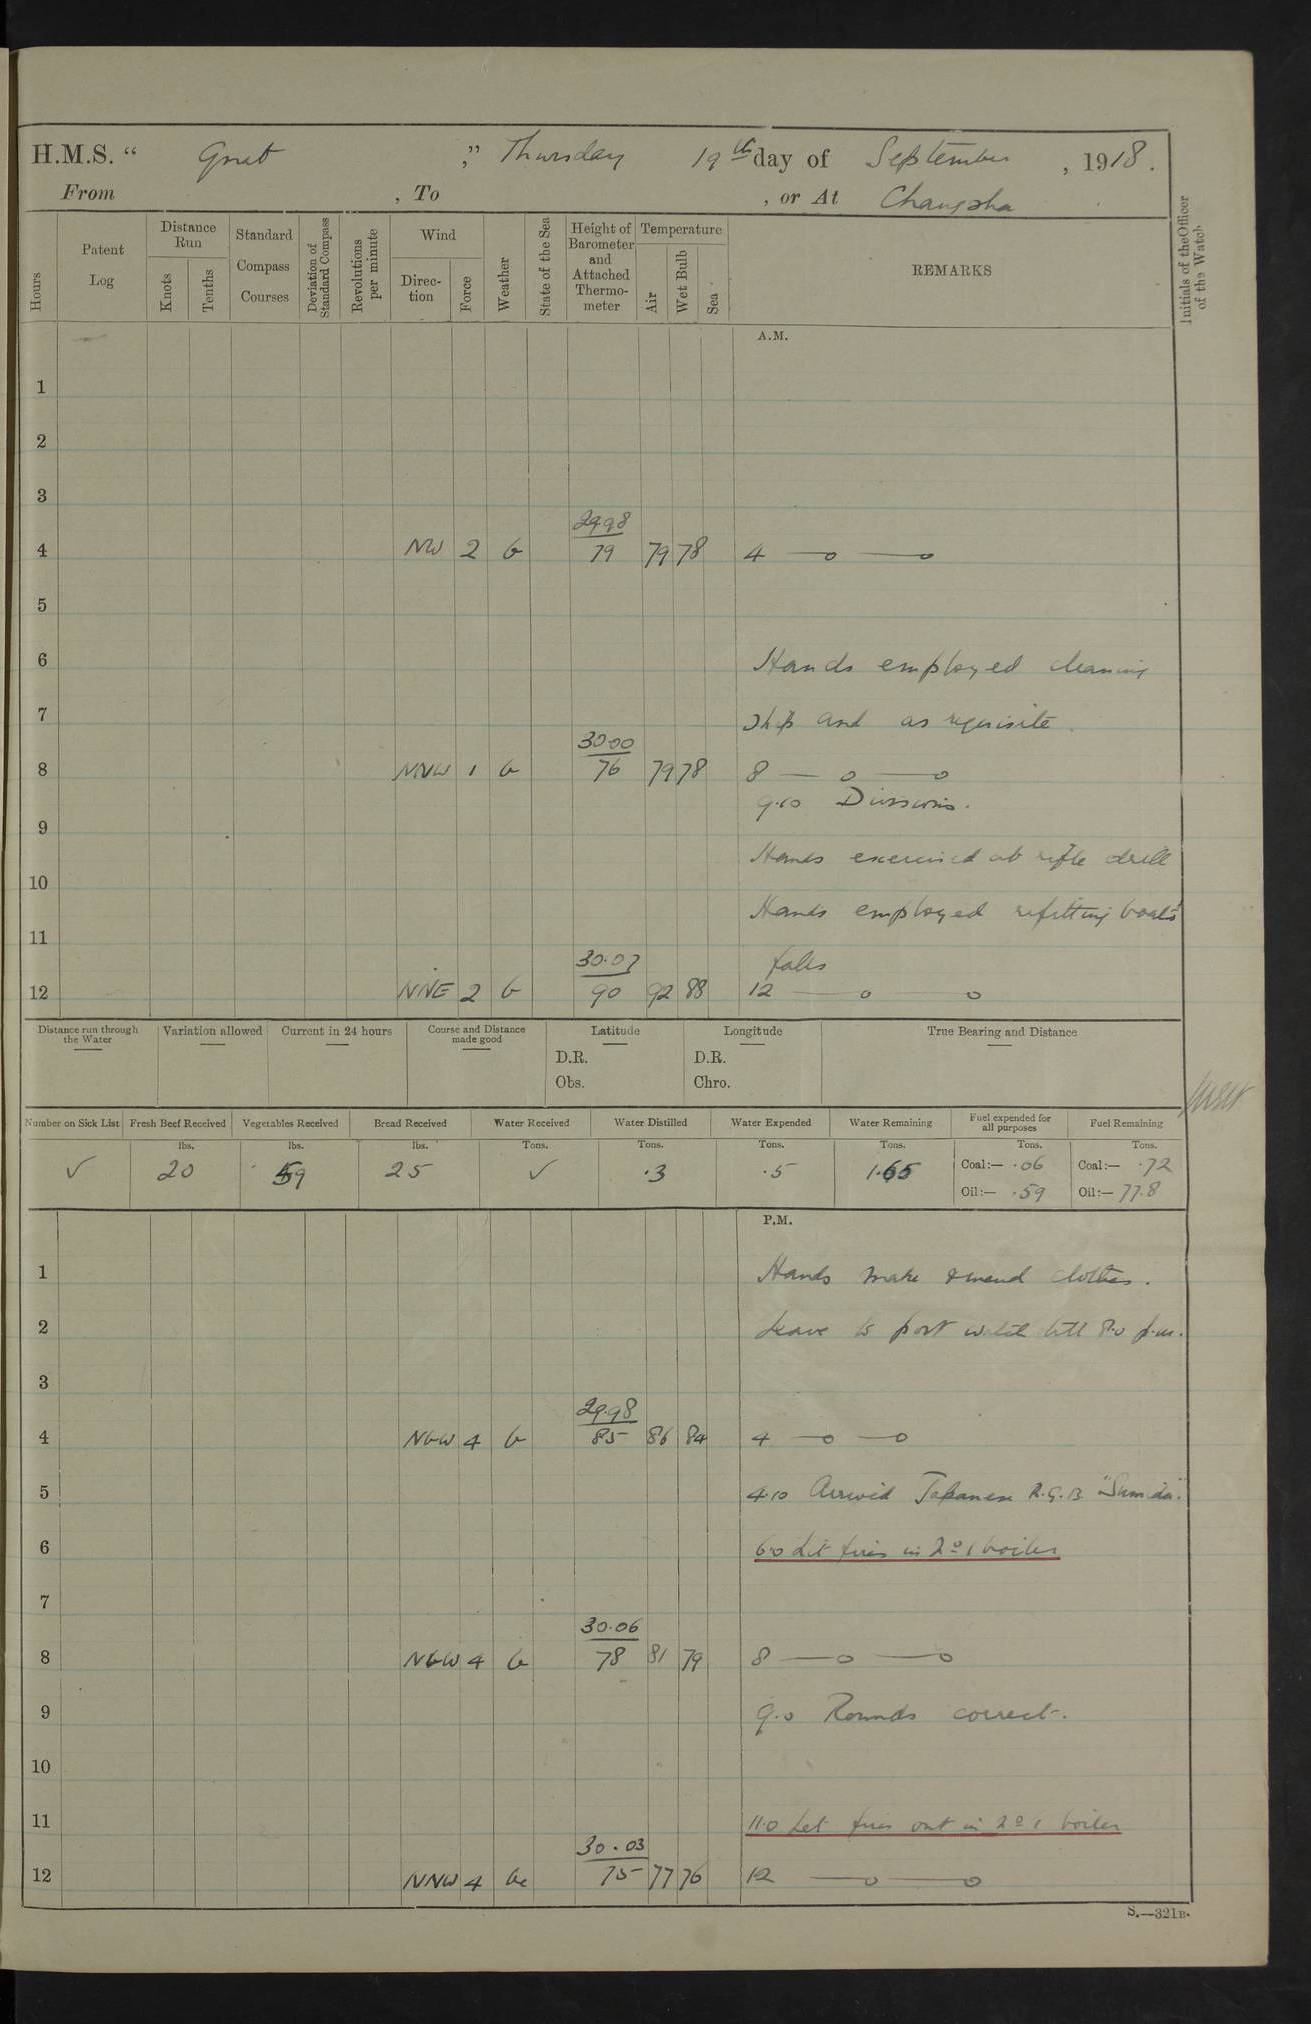 H.M.S. " Gnat ," Thursday 19th day of September , 1918.
From , To , or At Changsha
Hours
Patent Log
Distance Run
Knots
Tenths
Standard Compass Courses
Deviation of Standard Compass
Revolutions per minute
Wind
Direction
Force
Weather
State of the Sea
Height of Barometer and Attached Thermometer
Temperature
Air
Wet Bulb
Sea
REMARKS
Initials of the Officer of the Watch
A.M.
1
2
3
29.98
4 NW 2 b 79 79 78 4 —o —o
5
6 Hands employed cleaning
7 ship and as requisite.
30.00
8 NNW 1 b 76 79 78 8 — o —o
9.10 Divisions.
9
Hands exercised at rifle drill
10
Hands employed refitting boats'
11
30.07 falls
12 NNE 2 b 90 92 88 12 —o o
Distance run through the Water
Variation allowed
Current in 24 hours
Course and Distance made good
Latitude
D.R.
Obs.
Longitude
D.R.
Chro.
True Bearing and Distance
Number on Sick List Fresh Beef Received Vegetables Received Bread Received Water Received Water Distilled Water Expended Water Remaining Fuel expended for all purposes Fuel Remaining
lbs. lbs. lbs. Tons. Tons. Tons. Tons. Tons. Tons.
✓ 20 59 25 ✓ .3 .5 1.65 Coal:— .06 Coal:— .72
Oil:— .59 Oil:— 77.8
P.M.
1 Hands make & mend clothes.
2 Leave to port watch till 8.0 p.m.
3
29.98
4 NbW 4 b 85 86 84 4 —o —o
5 4.10 Arrived Japanese R.G.B. "Sumida".
6 6.0 Lit fires in No 1 boiler
7
30.06
8 NbW 4 b 78 81 79 8 —o —o
9 9.0 Rounds correct.
10
11 11.0 Let fires out in No 1 boiler
30.03
12 NNW 4 bc 75 77 76 12 —o —o
S.—321B.